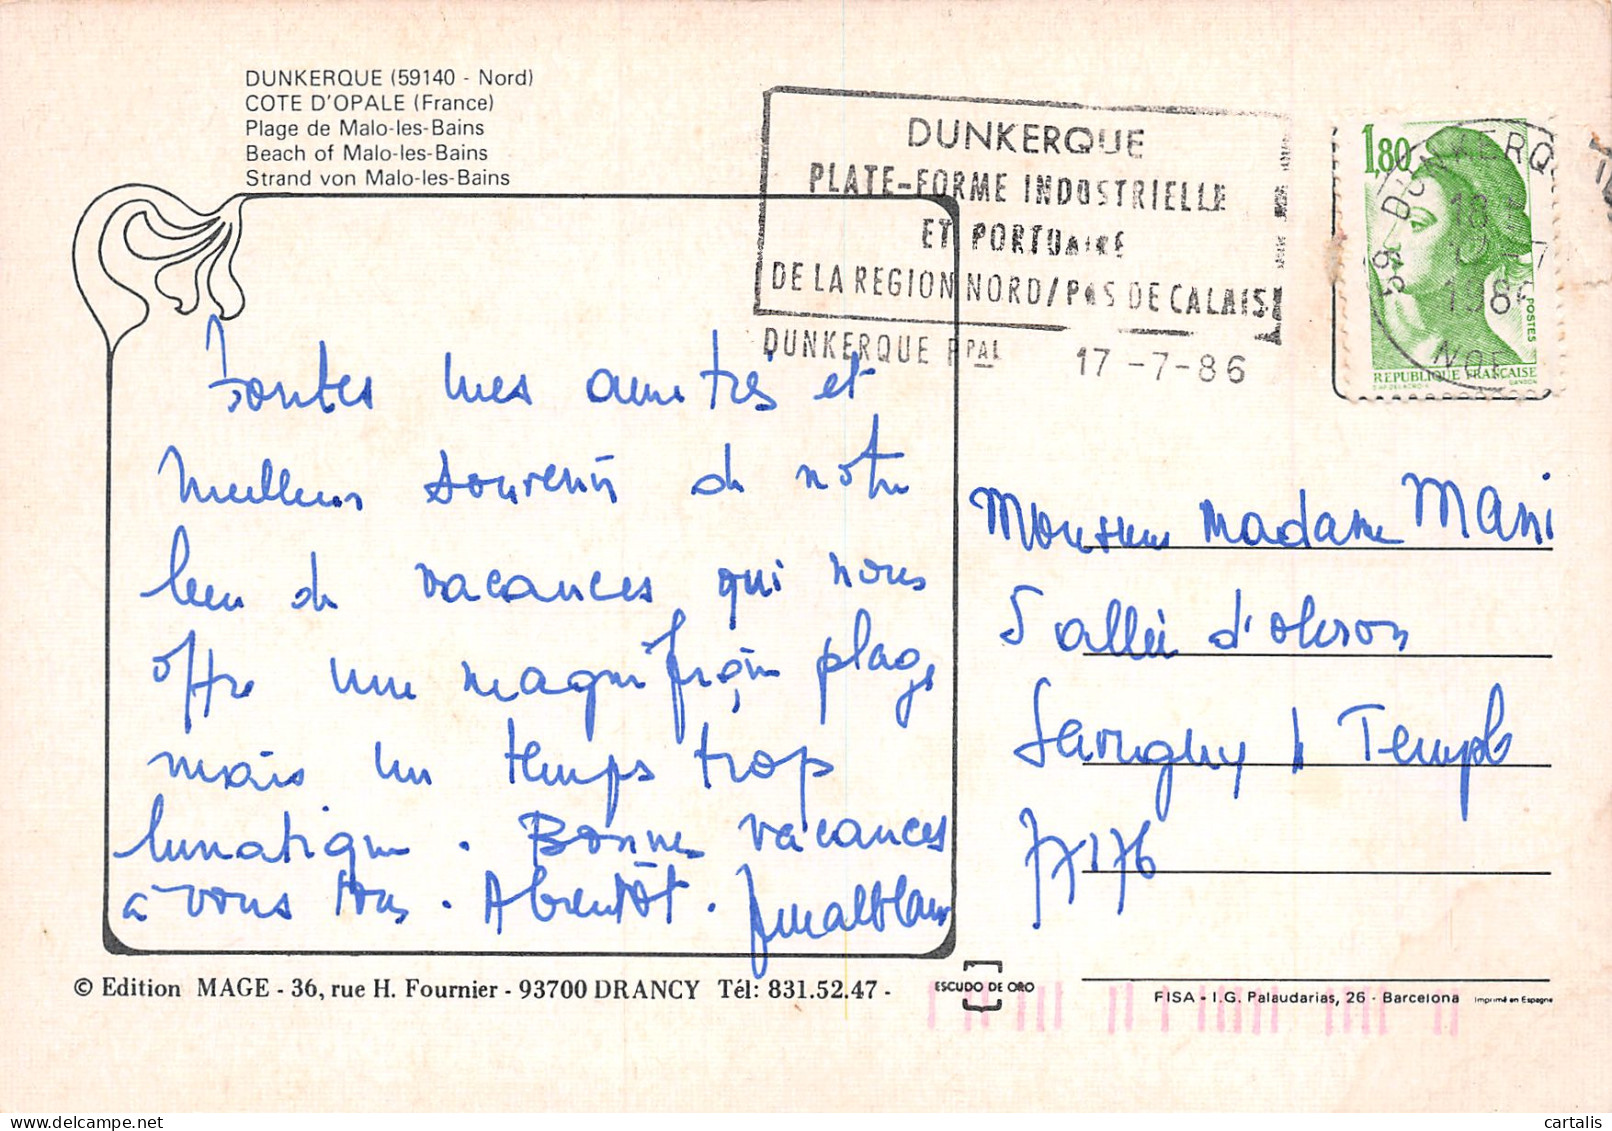 DUNKERQUE (59140 - Nord)
COTE D'OPALE (France)
Plage de Malo-les-Bains
Beach of Malo-les-Bains
Strand von Malo-les-Bains
DUNKERQUE
PLATE-FORME INDUSTRIELLE
ET PORTUAIRE
DE LA REGION NORD/PAS DE CALAIS
DUNKERQUE PPAL 17-7-86
1,80
59 - DUNKERQ
18
17-7
1986
NOR
POSTES
REPUBLIQUE FRANCAISE
GANDON
Toutes mes amitiés et
meilleurs souvenirs de notre
lieu de vacances qui nous
offre une magnifique plage
mais un temps trop
lunatique. Bonnes vacances
à vous tous. A bientôt.
Monsieur Madame Mani
5 allée d'oleron
Savigny le Temple
77176
© Edition MAGE - 36, rue H. Fournier - 93700 DRANCY Tél: 831.52.47 -
ESCUDO DE ORO
FISA - I.G. Palaudarias, 26 - Barcelona Imprimé en Espagne
cartalis